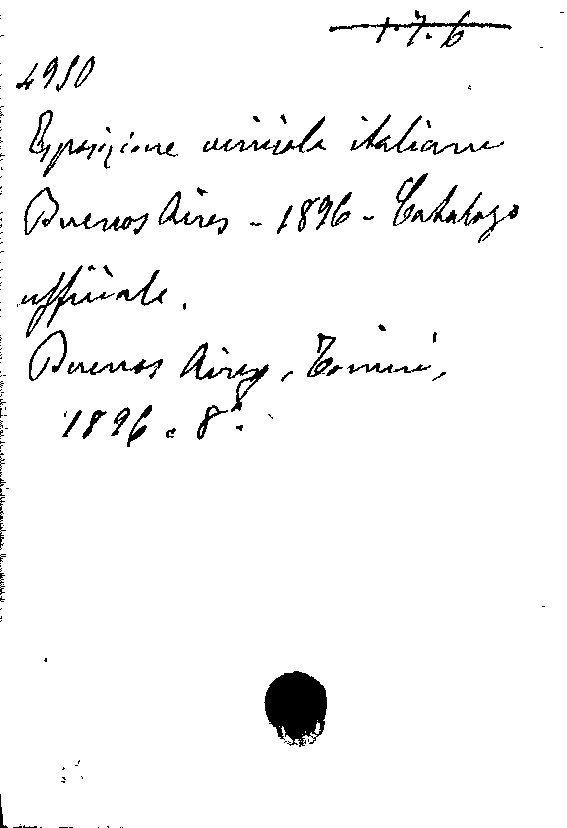 1.7.6
4950
Esposizione vinicola italiana
Buenos Aires - 1896 - Catalogo
ufficiale.
Buenos Aires,
1896. 8°.